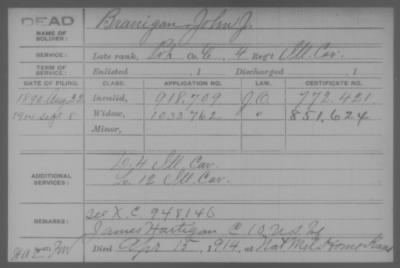 DEAD
NAME OF SOLDIER: Branigan, John J.
SERVICE: Late rank, Co. 4 Reg't Ill. Cav.
TERM OF SERVICE: Enlisted , 1 Discharged , 1
DATE OF FILING. CLASS. APPLICATION NO. LAW. CERTIFICATE NO.
1890 Aug 22 Invalid, 918.709 772.421.
Sept 8 Widow, 1033762 " 851,624
Minor,
ADDITIONAL SERVICES: D. 4 Ill. Cav.
12 Ill. Cav.
REMARKS: See X.C. 948146
James Hartigan C 10 U.S. Inf
Died Apr 15, 1914, at Nat Mil Home Kans